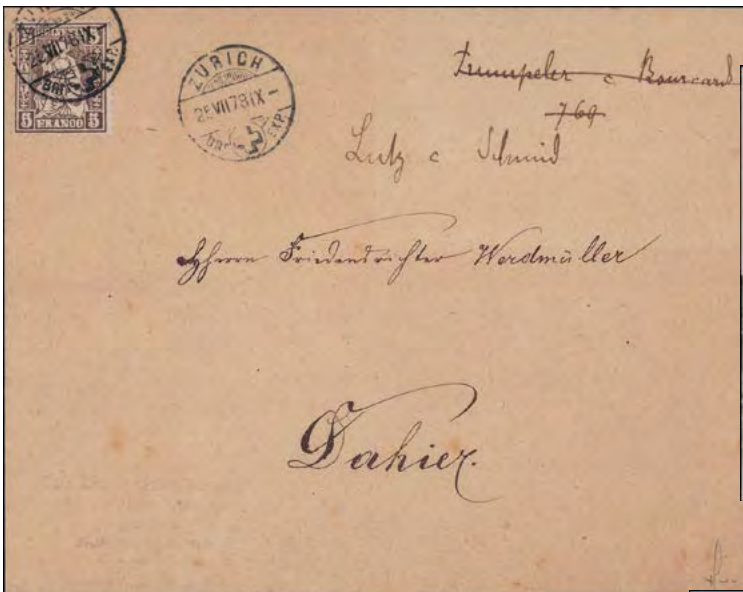 5 5
FRANCO
ZÜRICH
25VII78IX–
BRF. EXP.
Trumpeler c Bourcard
769
Lutz c Schmid
Hherrn Friedensrichter Werdmüller
Dahier.